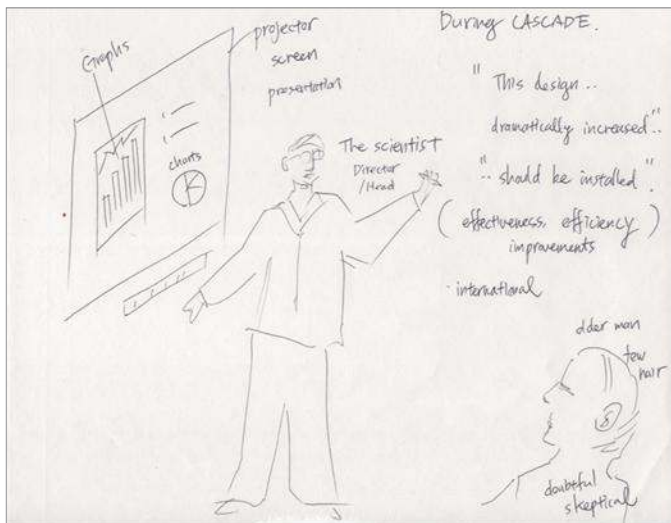 During CASCADE.
Graphs
projector
screen
presentation
charts
The scientist
Director
/Head
" This design ..
dramatically increased" ..
" .. should be installed".
( effectiveness, efficiency )
improvements
· international
older man
few
hair
doubtful
skeptical